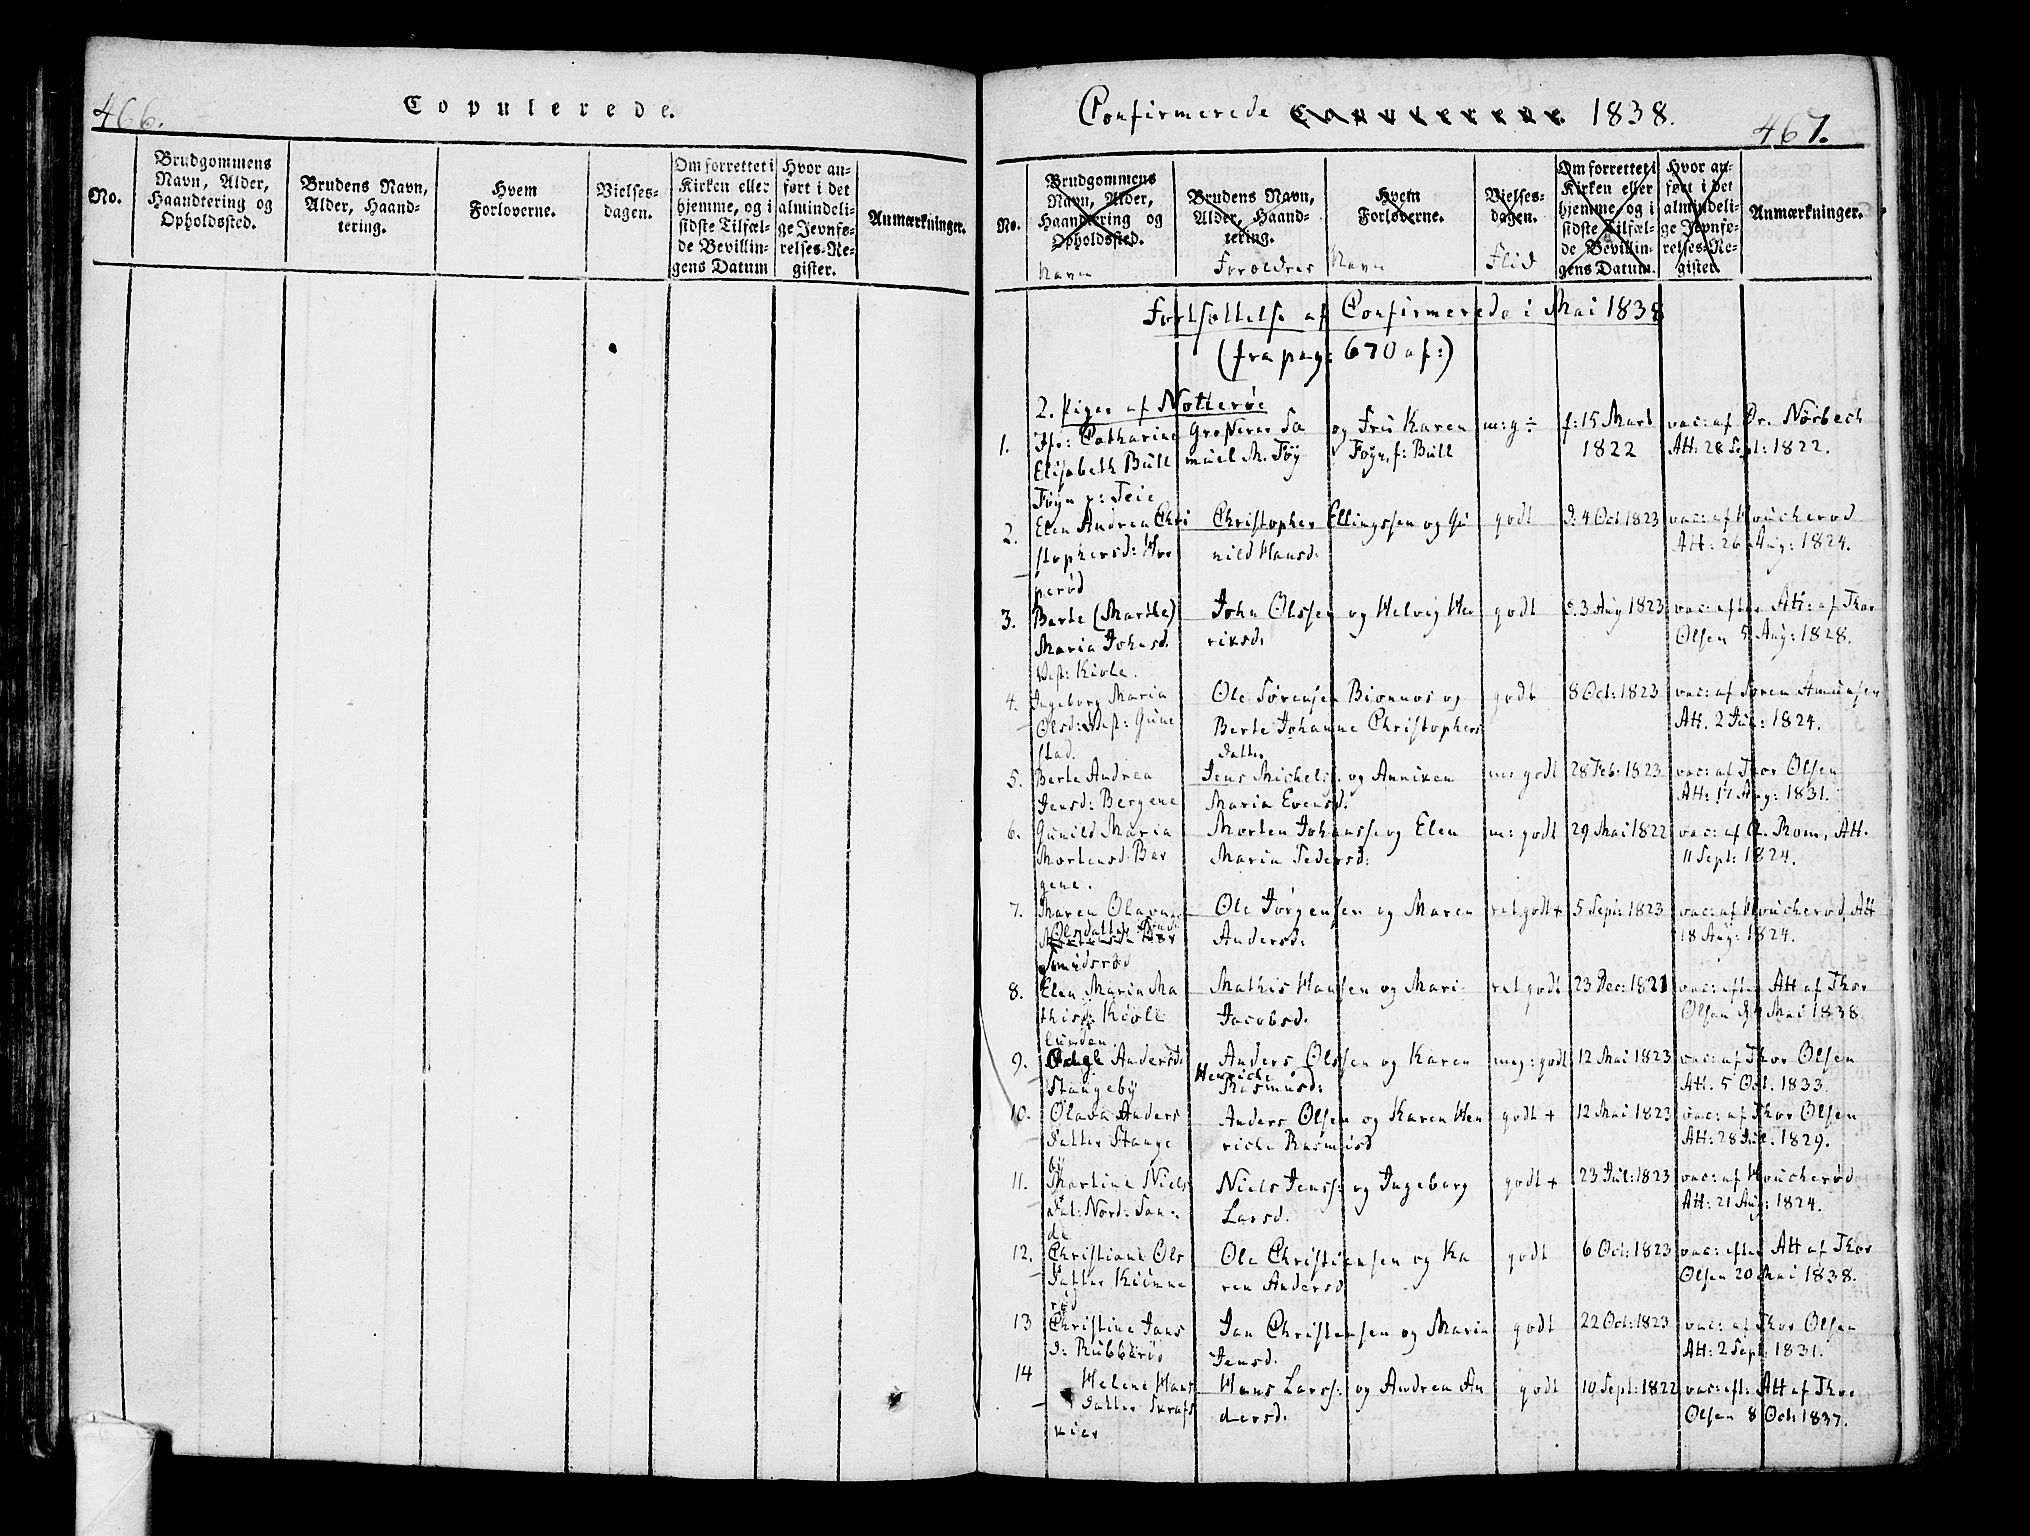 466.
Copulerede.
No.
Brudgommens Navn, Alder, Haandtering og Opholdssted.
Brudens Navn, Alder, Haandtering.
Hvem Forloverne.
Vielsesdagen.
Om forrettet i Kirken eller hjemme, og i sidste Tilfælde Bevillingens Datum
Hvor anført i det almindelige Jevnførelses-Register.
Anmærkninger.
Confirmerede Copulerede. 1838.
467.
No.
Brudgommens Navn, Alder, Haandtering og Opholdssted.
Navn
Brudens Navn, Alder, Haandtering.
Forældres
Hvem Forloverne.
Navn
Vielsesdagen.
Flid
Om forrettet i Kirken eller hjemme, og i sidste Tilfælde Bevillingens Datum.
Hvor anført i det almindelige Jevnførelses-Register.
Anmærkninger.
Fortsættelse af Confirmerede i Mai 1838
(fra pag: 670 af:)
2. Piger af Nøtterøe
1. Jfr: Catharine Grosserer Sa og Fru Karen m: g ÷ f: 15 Mart vac: af Dr. Nørbech
Elisabeth Bull muel M. Føy Føyn, f: Bull 1822 Att: 28 Sept: 1822.
Føyn p: Teie
2. Elen Andrea Chri Christopher Ellingssen og Gu godt d: 4 Oct 1823 vac: af Houcherød
stophersd: Hor nild Hansd: Att: 26 Aug: 1824.
perød
3. Berte (Marthe) John Olssen og Helvig Hen godt d. 3 Aug 1823 vac: efter Att: af Thor
Maria Johnsd. riksd. Olsen 5 Aug: 1828.
Vest: Kiøle.
4. Ingeborg Maria Ole Sørensen Bionnes og godt 8 Oct: 1823 vac: af Søren Amundsen
Olsd: Vest: Gune Berte Johanne Christophers Att. 2 Jul: 1824.
stad. datter
5. Berte Andrea Jens Michels: og Anniken m: godt 28 Feb: 1823 vac: af Thor Olsen
Jensd: Bergene Maria Evensd. Att: 17 Aug: 1831.
6. Gunild Maria Morten Johanss: og Elen m: godt 29 Mai 1822 vac: af A. Rom, Att.
Mortensd: Ber Maria Pedersd: 11 Sept: 1824.
gene.
7. Maren Olava Ole Jørgensen og Maren ret godt + 5 Sept: 1823 vac: af Houcherød, Att
Olsdatter Andersd: 18 Aug: 1824.
Smidsrød
8. Elen Maria Ma Mathis Hansen og Mari: ret godt 23 Dec: 1821 vac: efter Att af Thor
thisd: Kiøle Jacobsd. Olsen 4 Mai 1838
lunden
9. Andersd: Anders Olssen og Karen meg: godt 12 Mai 1823 vac: af Thor Olsen
Stangeby Henriche Rasmusd: Att. 5 Oct. 1833.
10. Olava Anders Anders Olsen og Karen Hen godt + 12 Mai 1823 vac: af Thor Olsen
datter Stange riche Rasmusd Att: 28 Jul. 1829.
by
11. Martine Niels Niels Jenss: og Ingeborg godt + 23 Jul: 1823 vac: af Houcherød
dat: Nord: San- Larsd. Att: 21 Aug: 1824.
de
12. Christiane Ols Ole Christiansen og Ka godt 6 Oct: 1823 vac: efter Att af Thor
datter Kiønne ren Andersd Olsen 20 Mai 1838.
rød
13 Christine Jans Jan Christensen og Maria godt 22 Oct: 1823 vac: af Thor Olsen
d: Rubberød Jensd. Att: 2 Sept 1831.
14 Helene Hans Hans Larss: og Andrea An godt 10 Sept: 1822 vac: eft. Att af Thor
datter Sarafs dersd: Olsen 8 Oct: 1837.
kier